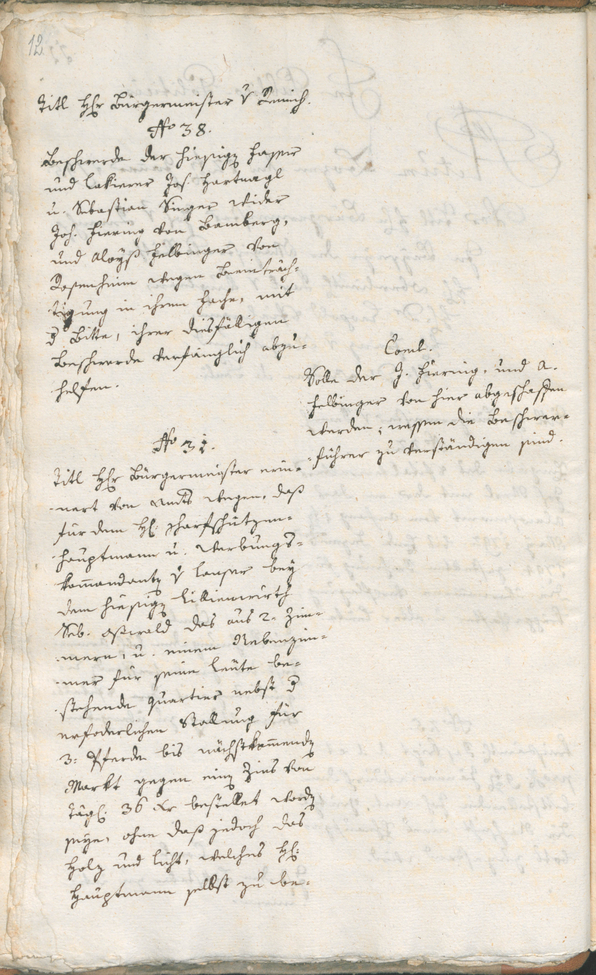 12
Titl Hr Bürgermeister v Remich.
No 38.
Beschwerde der hiesigen Hafner
und Lakierer Jos. Hartnagl
u. Sebastian Singer wider
Joh. Hiering von Bamberg,
und Aloys Helbinger von
Rosenheim wegen Beeinträch-
tigung in ihrem Fache, mit
d Bitte, ihrer diesfäligen
Beschwerde verfänglich abzu-
helffen.
Concl.
Solle der J. Hiering, und A.
Helbinger von hier abgeschaffen
werden; wessen die Beschwer-
führer zu verständigen sind.
No 32.
Titl Hr Bürgermeister erin-
nert von Amts wegen, daß
für dem H. Scharfschützen-
hauptmann u. Werbungs-
kommandanten v Lanser bey
dem hiesigen Lilienwirth
Seb. Oswald das aus 2. Zim-
mern, u. einem Nebenzim-
mer für seine Leute be-
stehende Quartier nebst d
erforderlichen Stallung für
3. Pferde bis nächstkommenden
Markt gegen einen Zins von
tägl. 36 xr bestellet worden
seye, ohne daß jedoch das
Holz und Licht, welches H.
Hauptmann selbst zu be-